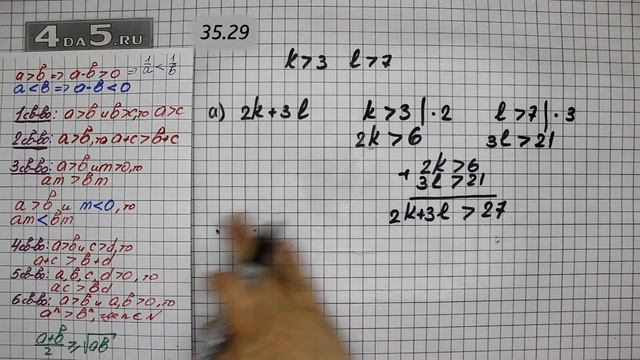 4DA5.RU
a>b => a-b>0 => 1/a < 1/b
a<b => a-b<0
1 св-во: a>b и b>c, то a>c
2 св-во: a>b, то a+c>b+c
3 св-во: a>b и m>0, то
am > bm
a>b и m<0, то
am < bm
4 св-во: a>b и c>d, то
a+c > b+d
5 св-во: a, b, c, d>0, то
ac > bd
6 св-во: a>b и a,b>0, то
aⁿ > bⁿ, где n ∈ N
a+b/2 ≥ √ab
35.29
k>3 l>7
а) 2k+3l k>3 | ·2 l>7 | ·3
2k>6 3l>21
+ 2k>6
3l>21
2k+3l > 27